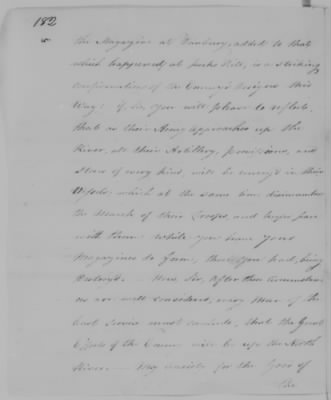 182
the Magazine at Danbury, added to that
which happened at Peeks Kill, is a striking
confirmation of the Enemy's designs this
Way; if, Sir, you will please to reflect,
that as their Army approaches up the
River, all their Artillery, provisions, and
Stores of every kind, will be convey'd in their
Vessels, which at the same time
the March of their Troops, and keeps pace
with them. While you have your
Magazines to form, those you had, being
destroy'd. — Now, Sir, after these Circumstances
are well considered, every Man of the
least Service must that the Great
Efforts of the Enemy will be up the North
River — My anxiety for the Good of
the